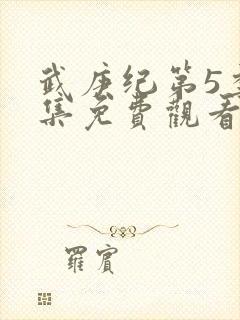 武庚纪第5季
集免費觀看
羅賓